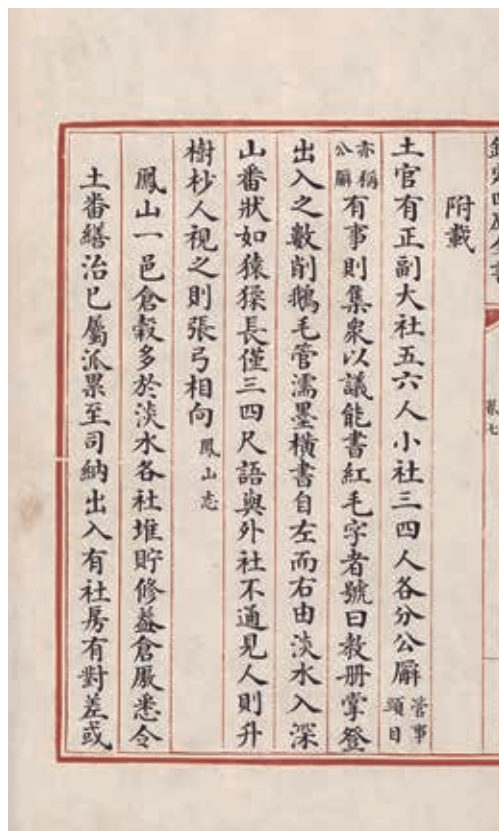 卷七
附載
土官有正副大社五六人小社三四人各分公廨管事頭目
亦稱公廨有事則集衆以議能書紅毛字者號曰教册掌登
出入之數削鵝毛管濡墨橫書自左而右由淡水入深
山番狀如猿猱長僅三四尺語與外社不通見人則升
樹杪人視之則張弓相向鳳山志
鳳山一邑倉穀多於淡水各社堆貯修葢倉廒悉令
土番繕治已屬派累至司納出入有社房有對差或